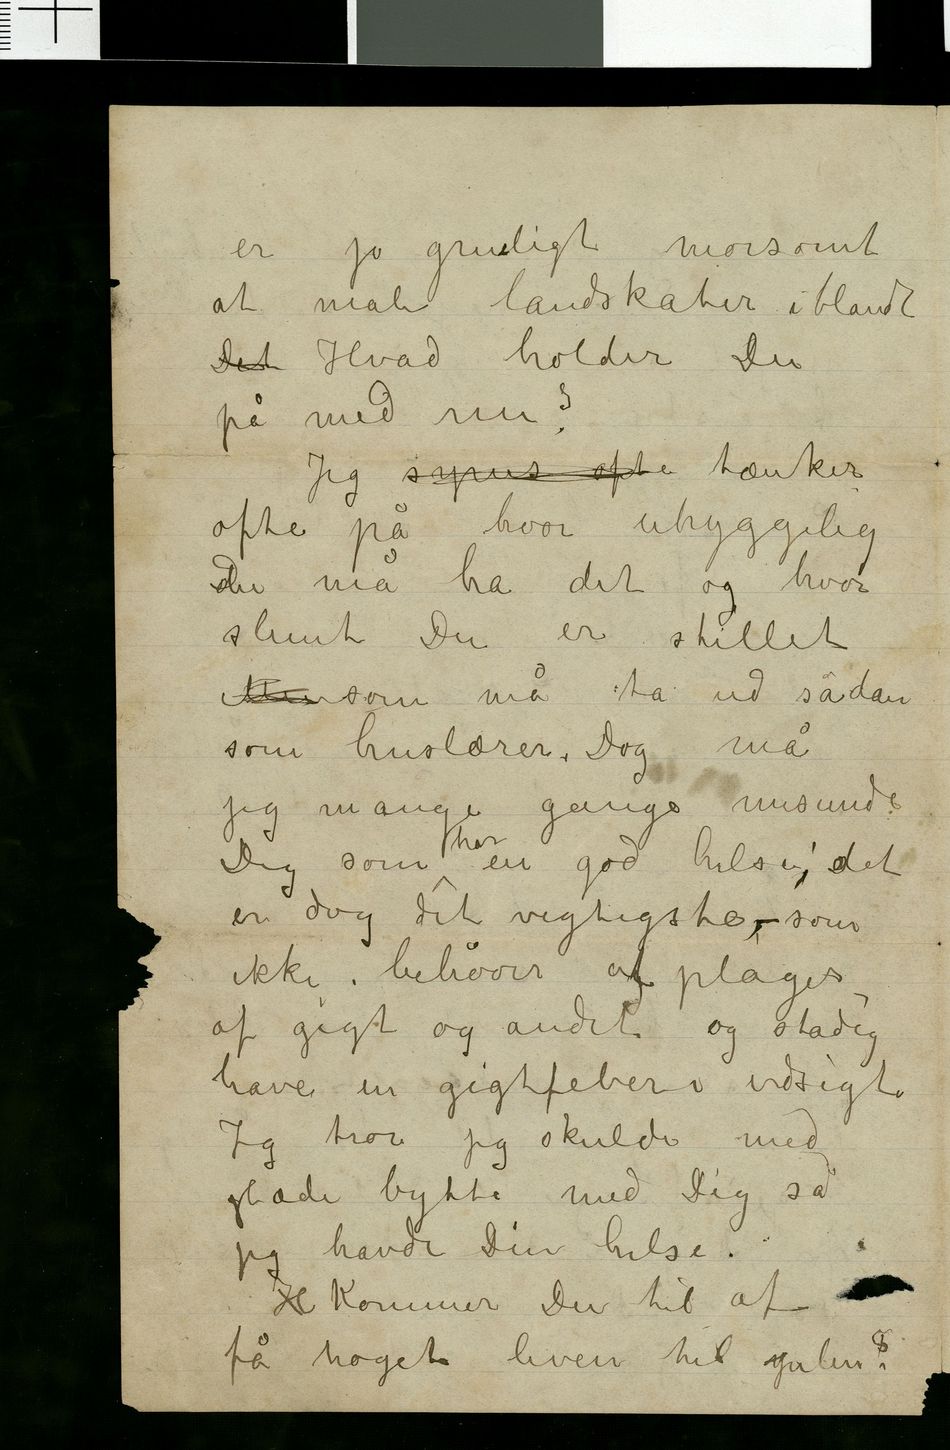 er jo gruligt morsomt
at male landskaber iblandt
Det Hvad holder Du
på med nu?
Jeg synes ofte tænker
ofte på hvor uhyggelig
Du må ha det og hvor
slemt Du er stillet
Men som må ta ud sådan
som huslærer. Dog må
jeg mange gange misunde
Dig som har en god helse, det
er dog dit vigtigste, – som
ikke behøver at plages
af gigt og andet og stadig
have en gigtfeber i udsigt.
Jeg tror jeg skulde med
glæde bytte med Dig så
jeg havde Din helse.
H Kommer Du til at
få noget leven til julen?